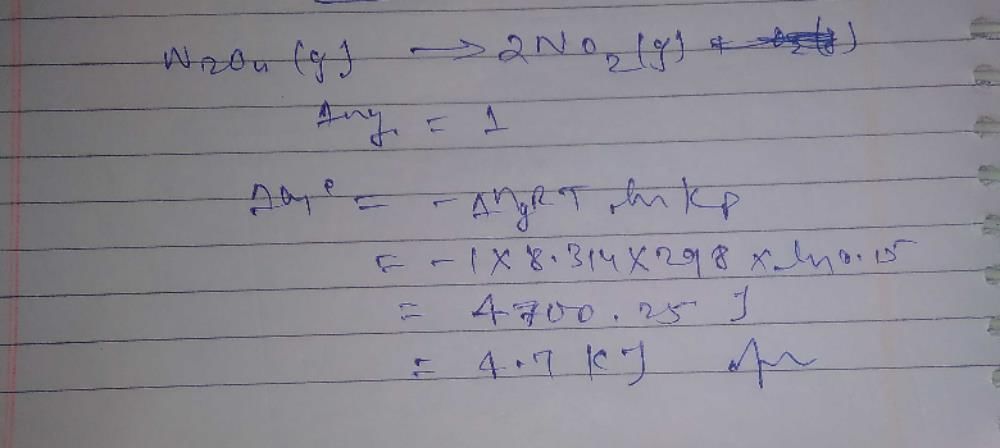 N2O4 (g) → 2NO2 (g) +
Δng = 1
ΔG° = - ΔngRT ln Kp
= - 1 × 8.314 × 298 × ln 0.15
= 4700.25 J
= 4.7 KJ